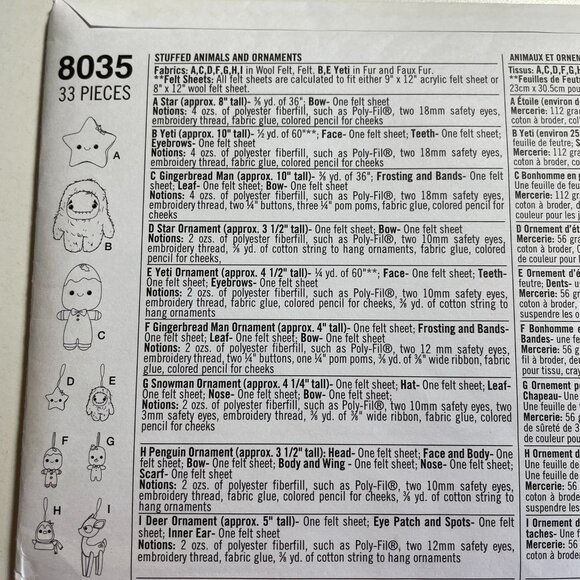 8035
33 PIECES
A
B
C
D
E
F
G
H
I
STUFFED ANIMALS AND ORNAMENTS
Fabrics: A,C,D,F,G,H,I in Wool Felt, Felt. B,E Yeti in Fur and Faux Fur.
**Felt Sheets: All felt sheets are calculated to fit either 9" x 12" acrylic felt sheet or
8" x 12" wool felt sheets.
A Star (approx. 8" tall)- ⅜ yd. of 36"; Bow- One felt sheet
Notions: 4 ozs. of polyester fiberfill, such as Poly-Fil®, two 18mm safety eyes,
embroidery thread, fabric glue, colored pencil for cheeks
B Yeti (approx. 10" tall)- ½ yd. of 60"***; Face- One felt sheet; Teeth- One felt sheet;
Eyebrows- One felt sheet
Notions: 4 ozs. of polyester fiberfill, such as Poly-Fil®, two 18mm safety eyes,
embroidery thread, fabric glue, colored pencil for cheeks
C Gingerbread Man (approx. 10" tall)- ⅜ yd. of 36"; Frosting and Bands- One felt
sheet; Leaf- One felt sheet; Bow- One felt sheet
Notions: 4 ozs. of polyester fiberfill, such as Poly-Fil®, two 18mm safety eyes,
embroidery thread, two ¼" buttons, three ¼" pom poms, ⅜ yd. of ⅜" ribbon, fabric glue, colored pencil for
cheeks
D Star Ornament (approx. 3 1/2" tall)- One felt sheet; Bow- One felt sheet
Notions: 2 ozs. of polyester fiberfill, such as Poly-Fil®, two 10mm safety eyes,
embroidery thread, ⅜ yd. of cotton string to hang ornaments, fabric glue,
colored pencil,
E Yeti Ornament (approx. 4 1/2" tall)- ¼ yd. of 60"**; Face- One felt sheet; Teeth-
One felt sheet; Eyebrows- One felt sheet
Notions: 2 ozs. of polyester fiberfill, such as Poly-Fil®, two 10mm safety eyes,
embroidery thread, fabric glue, colored pencil for cheeks, ⅜ yd. of cotton string to
hang ornaments
F Gingerbread Man Ornament (approx. 4" tall)- One felt sheet; Frosting and Bands-
One felt sheet; Leaf- One felt sheet; Bow- One felt sheet
Notions: 2 ozs. of polyester fiberfill, such as Poly-Fil®, two 12 mm safety eyes,
embroidery thread, two ¼" buttons, one ¼" pom pom, ⅜ yd. of ⅜" wide ribbon, fabric glue,
colored pencil for cheeks
G Snowman Ornament (approx. 4 1/4" tall)- One felt sheet; Hat- One felt sheet; Leaf-
One felt sheet; Nose- One felt sheet; Bow- One felt sheet;
Notions: 2 ozs. of polyester fiberfill, such as Poly-Fil®, two 10mm safety eyes, two
3mm safety eyes, embroidery thread, ⅜ yd. of ⅜" wide ribbon, fabric glue, colored
pencil for cheeks
H Penguin Ornament (approx. 3 1/2" tall): Head- One felt sheet; Face and Body- One
felt sheet; Bow- One felt sheet; Body and Wing - One felt sheet; Nose- One felt sheet;
Scarf- One felt sheet
Notions: 2 ozs. of polyester fiberfill, such as Poly-Fil®, two 10mm safety eyes,
embroidery thread, fabric glue, colored pencil for cheeks, ⅜ yd. of cotton string to
hang ornaments
I Deer Ornament (approx. 5" tall)- One felt sheet; Eye Patch and Spots- One felt
sheet; Inner Ear- One felt sheet
Notions: 2 ozs. of polyester fiberfill, such as Poly-Fil®, two 12mm safety eyes,
embroidery thread, fabric glue, ⅜ yd. of cotton string to hang ornaments
ANIMAUX ET ORNEM
Tissus: A,C,D,F,G,H,
**Feuilles de Feutre
23cm x 30.5cm pour
A Étoile (environ
Mercerie: 112 gram
coton à broder, co
B Yeti (environ 25
feuille de feutre; S
Mercerie: 112 gra
coton à broder, c
C Bonhomme en p
Une feuille de feu
Mercerie: 112 gra
coton à broder, d
couleur pour les j
D Ornement d'ét
Mercerie: 56 gra
coton à broder,
de couleur pour
E Ornement d
feutre; Dents- un
Mercerie: 56 g
coton à broder
suspendre les o
F Bonhomme
Bandes- une fe
Mercerie: 56 g
fil à broder, de
pour tissu, cray
G Ornement p
Chapeau- Une
feuille de feut
Mercerie: 56
de sûreté de 3
de couleur pou
H Ornement
Une feuille de
Une feuille de
Mercerie: 56
coton à brode
suspendre les
I Ornement d
taches- Une f
Mercerie: 56
coton à brod